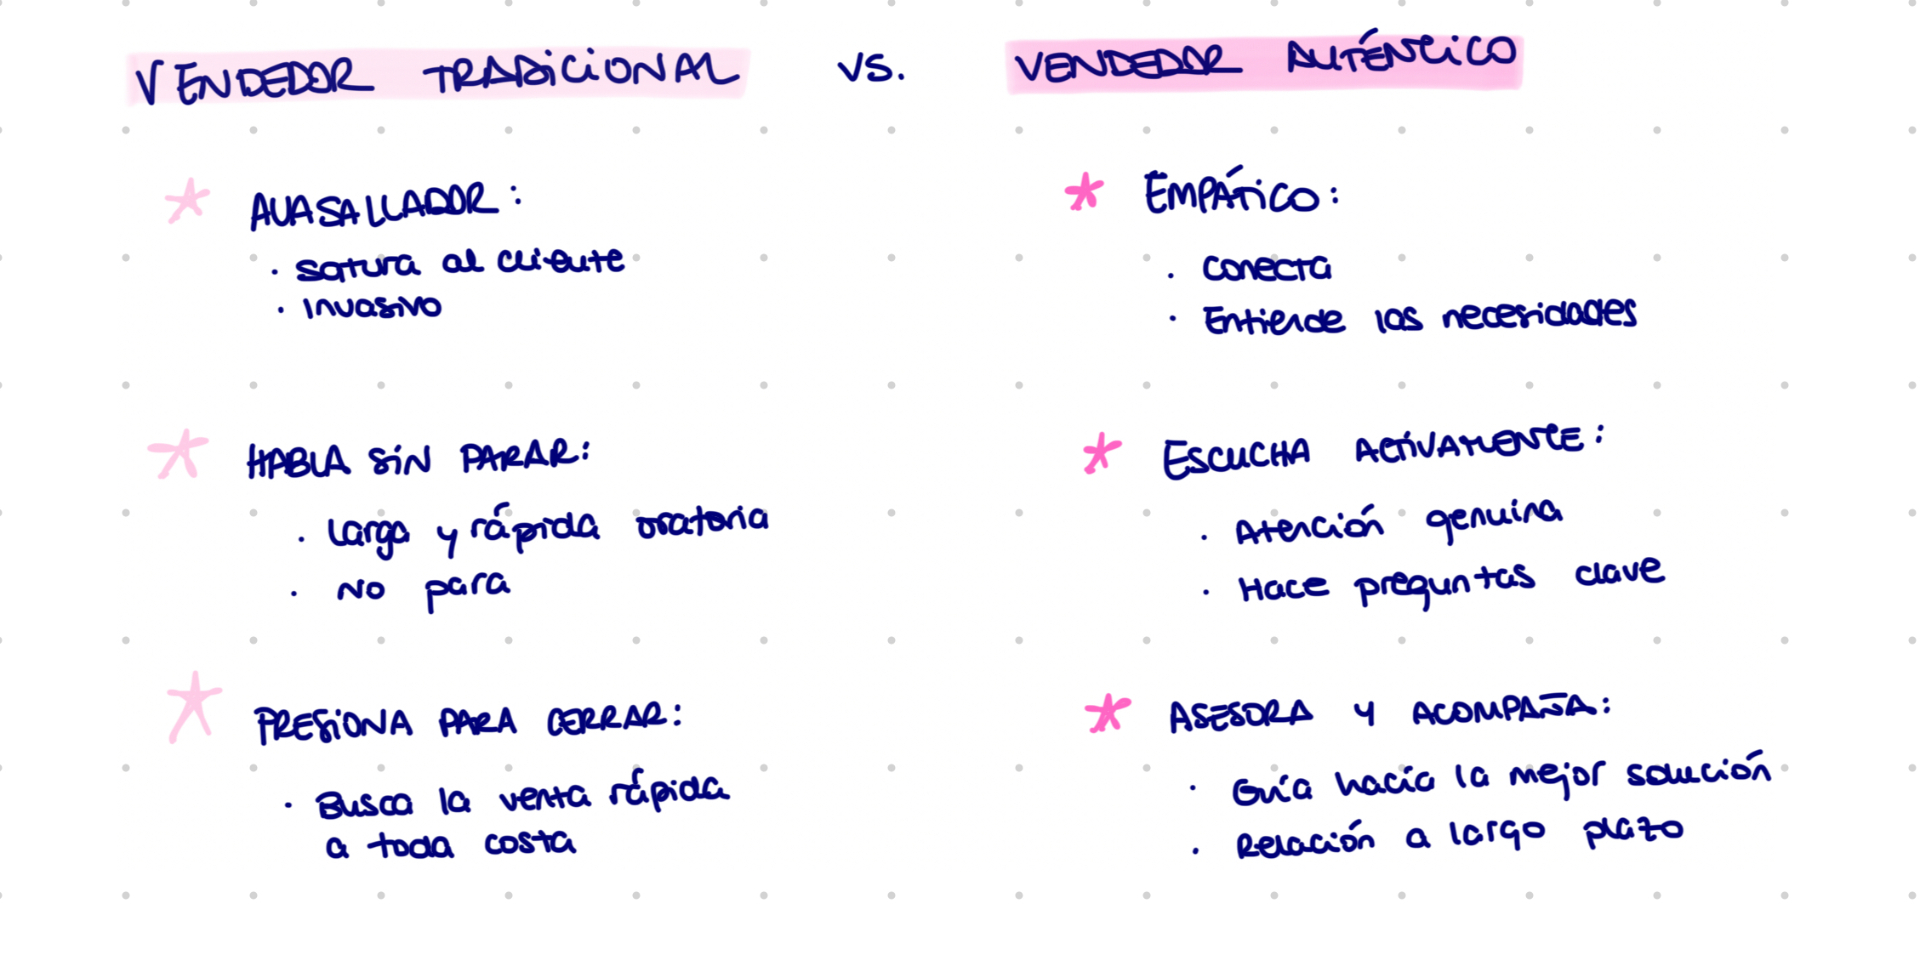 VENDEDOR TRADICIONAL VS. VENDEDOR AUTÉNTICO
* AVASALLADOR:
· satura al cliente
· Invasivo
* HABLA SIN PARAR:
· Larga y rápida oratoria
· No para
* PRESIONA PARA CERRAR:
· Busca la venta rápida
a toda costa
* EMPÁTICO:
· Conecta
· Entiende las necesidades
* ESCUCHA ACTIVAMENTE:
· Atención genuina
· Hace preguntas clave
* ASESORA Y ACOMPAÑA:
· Guía hacia la mejor solución
· Relación a largo plazo